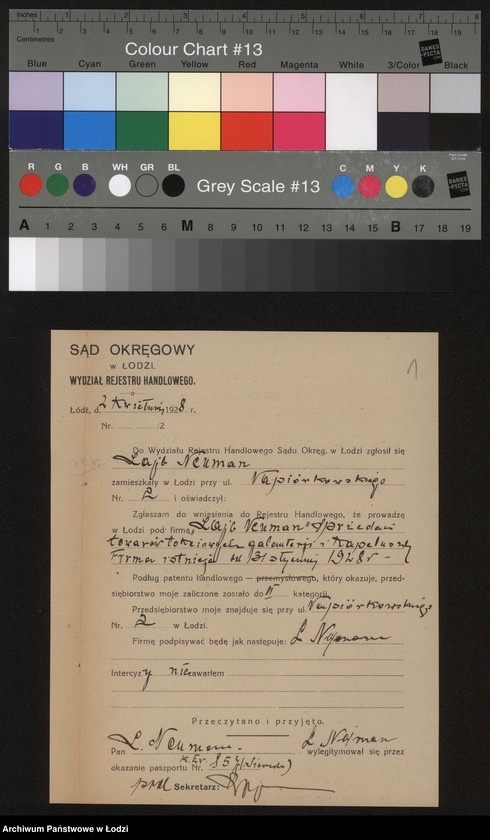 Inches 1 2 3 4 5 6 7 8
Centimetres 1 2 3 4 5 6 7 8 9 10 11 12 13 14 15 16 17 18 19
Colour Chart #13
DANES PICTA .COM
Blue Cyan Green Yellow Red Magenta White 3/Color Black
R G B WH GR BL
Grey Scale #13
C M Y K
DANES PICTA .COM
A 1 2 3 4 5 6 M 8 9 10 11 12 13 14 15 B 17 18 19
1
SĄD OKRĘGOWY
W ŁODZI.
WYDZIAŁ REJESTRU HANDLOWEGO.
Łódź, d. 2 Kwietnia 1928 r.
Nr. /2
Do Wydziału Rejestru Handlowego Sądu Okręg. w Łodzi zgłosił się
Lajb Neuman
zamieszkały w Łodzi przy ul. Napiórkowskiego
Nr. 2 i oświadczył:
Zgłaszam do wniesienia do Rejestru Handlowego, że prowadzę
w Łodzi pod firmą „Lajb Neuman" Sprzedaż
towarów łokciowych galanterji i kapeluszy
Firma istnieje od 31 stycznia 1928 r –
Podług patentu handlowego — przemysłowego, który okazuje, przed-
siębiorstwo moje zaliczone zostało do II kategorji
Przedsiębiorstwo moje znajduje się przy ul. Napiórkowskiego
Nr. 2 w Łodzi.
Firmę podpisywać będę jak następuje: L Najman
Intercyzy nie zawarłem
Przeczytano i przyjęto.
Pan L. Neuman. L Najman wylegitymował się przez
okazanie paszportu Nr.
Sekretarz:
Archiwum Państwowe w Łodzi